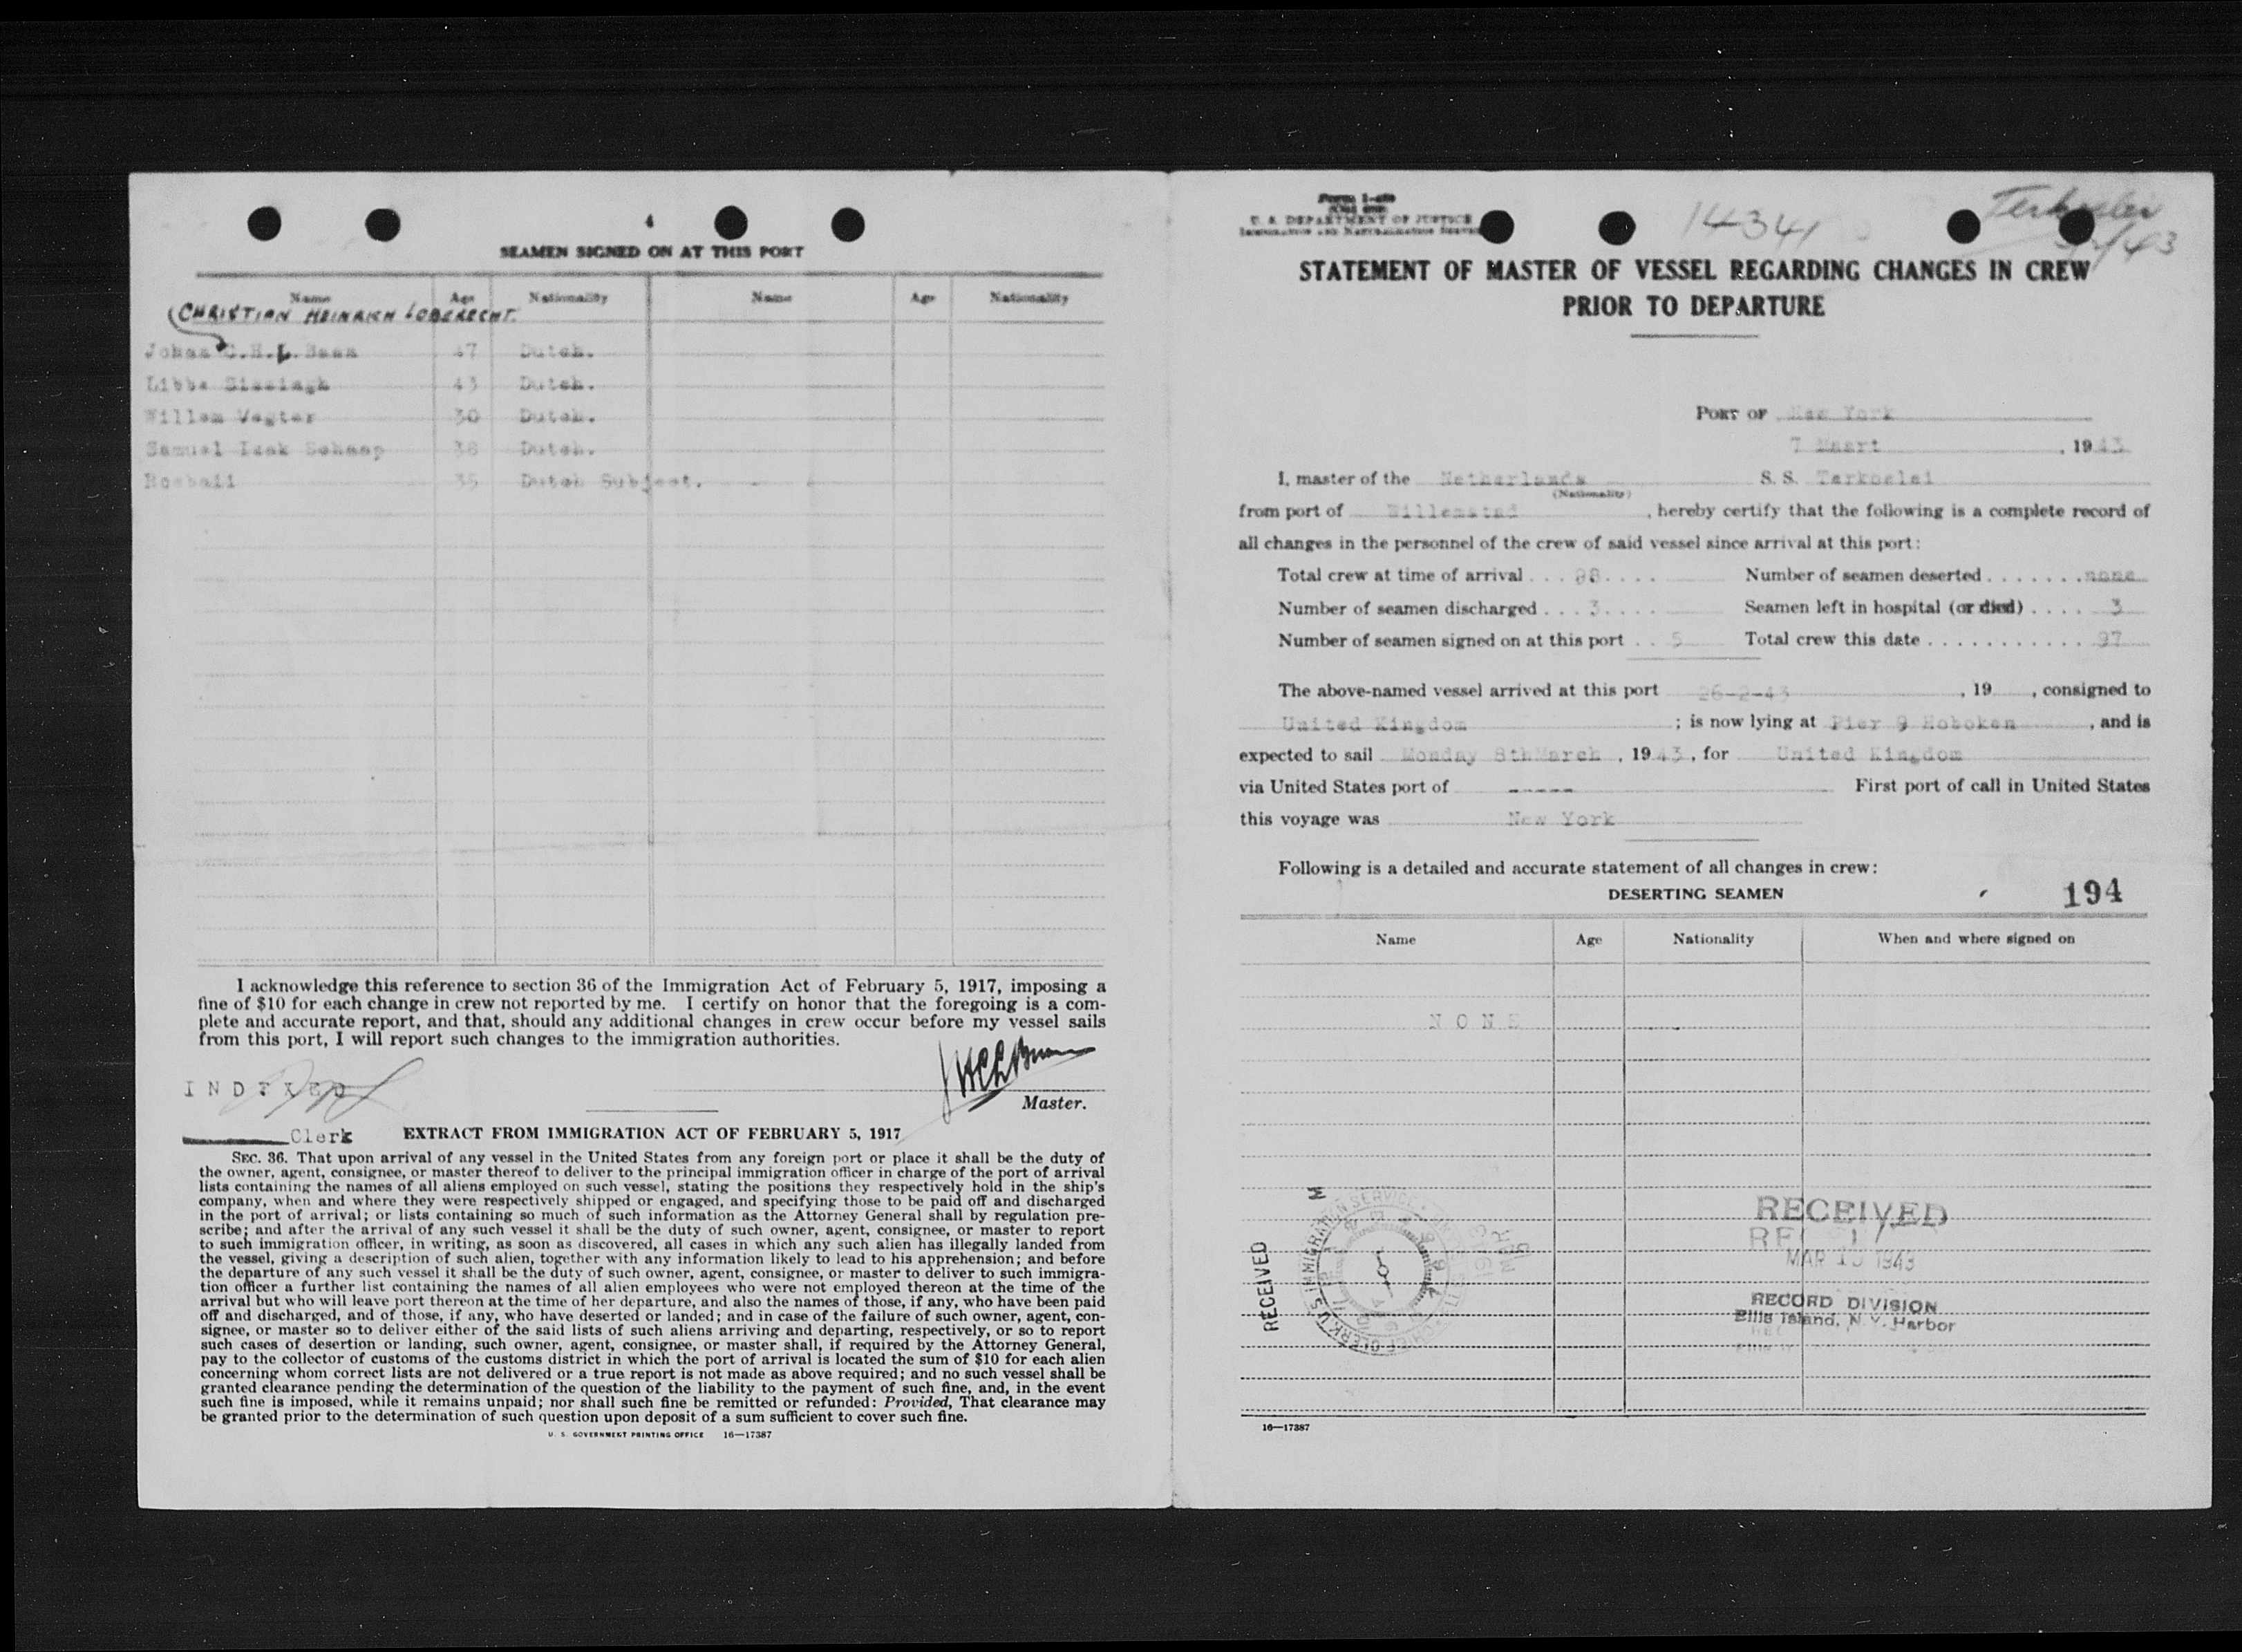 4
SEAMEN SIGNED ON AT THIS PORT
Name Age Nationality Name Age Nationality
CHRISTIAN HEINRICH LOBERECHT.
Johan C.H.L. Baan 47 Dutch.
Libbe Sissingh 43 Dutch.
Willem Vagter 30 Dutch.
Samuel Izak Schaap 38 Dutch.
Rosbali 35 Dutch Subject.
I acknowledge this reference to section 36 of the Immigration Act of February 5, 1917, imposing a
fine of $10 for each change in crew not reported by me. I certify on honor that the foregoing is a com-
plete and accurate report, and that, should any additional changes in crew occur before my vessel sails
from this port, I will report such changes to the immigration authorities.
INDEXED
Master.
Clerk
EXTRACT FROM IMMIGRATION ACT OF FEBRUARY 5, 1917
SEC. 36. That upon arrival of any vessel in the United States from any foreign port or place it shall be the duty of
the owner, agent, consignee, or master thereof to deliver to the principal immigration officer in charge of the port of arrival
lists containing the names of all aliens employed on such vessel, stating the positions they respectively hold in the ship's
company, when and where they were respectively shipped or engaged, and specifying those to be paid off and discharged
in the port of arrival; or lists containing so much of such information as the Attorney General shall by regulation pre-
scribe; and after the arrival of any such vessel it shall be the duty of such owner, agent, consignee, or master to report
to such immigration officer, in writing, as soon as discovered, all cases in which any such alien has illegally landed from
the vessel, giving a description of such alien, together with any information likely to lead to his apprehension; and before
the departure of any such vessel it shall be the duty of such owner, agent, consignee, or master to deliver to such immigra-
tion officer a further list containing the names of all alien employees who were not employed thereon at the time of the
arrival but who will leave port thereon at the time of her departure, and also the names of those, if any, who have been paid
off and discharged, and of those, if any, who have deserted or landed; and in case of the failure of such owner, agent, con-
signee, or master so to deliver either of the said lists of such aliens arriving and departing, respectively, or so to report
such cases of desertion or landing, such owner, agent, consignee, or master shall, if required by the Attorney General,
pay to the collector of customs of the customs district in which the port of arrival is located the sum of $10 for each alien
concerning whom correct lists are not delivered or a true report is not made as above required; and no such vessel shall be
granted clearance pending the determination of the question of the liability to the payment of such fine, and, in the event
such fine is imposed, while it remains unpaid; nor shall such fine be remitted or refunded: Provided, That clearance may
be granted prior to the determination of such question upon deposit of a sum sufficient to cover such fine.
U. S. GOVERNMENT PRINTING OFFICE 16—17387
U. S. DEPARTMENT OF JUSTICE
IMMIGRATION AND NATURALIZATION SERVICE
14341
Terkoelei
STATEMENT OF MASTER OF VESSEL REGARDING CHANGES IN CREW
PRIOR TO DEPARTURE
PORT OF New York
7 Maart, 1943
I, master of the Netherlands S. S. Terkoelei
(Nationality)
from port of Willemstad, hereby certify that the following is a complete record of
all changes in the personnel of the crew of said vessel since arrival at this port:
Total crew at time of arrival . . . 98 . . . . Number of seamen deserted . . . . . . . none
Number of seamen discharged . . . 3 . . . . Seamen left in hospital (or died) . . . . 3
Number of seamen signed on at this port . . 5 Total crew this date . . . . . . . . . . . . 97
The above-named vessel arrived at this port 26-2-43, 19 , consigned to
United Kingdom ; is now lying at Pier 9 Hoboken, and is
expected to sail Monday 8th March, 1943, for United Kingdom
via United States port of ----- First port of call in United States
this voyage was New York
Following is a detailed and accurate statement of all changes in crew:
DESERTING SEAMEN 194
Name Age Nationality When and where signed on
NONE
RECEIVED
U.S. IMMIGRATION SERVICE
CHIEF CLERK
RECEIVED
MAR 15 1943
RECORD DIVISION
Ellis Island, N. Y. Harbor
16—17387